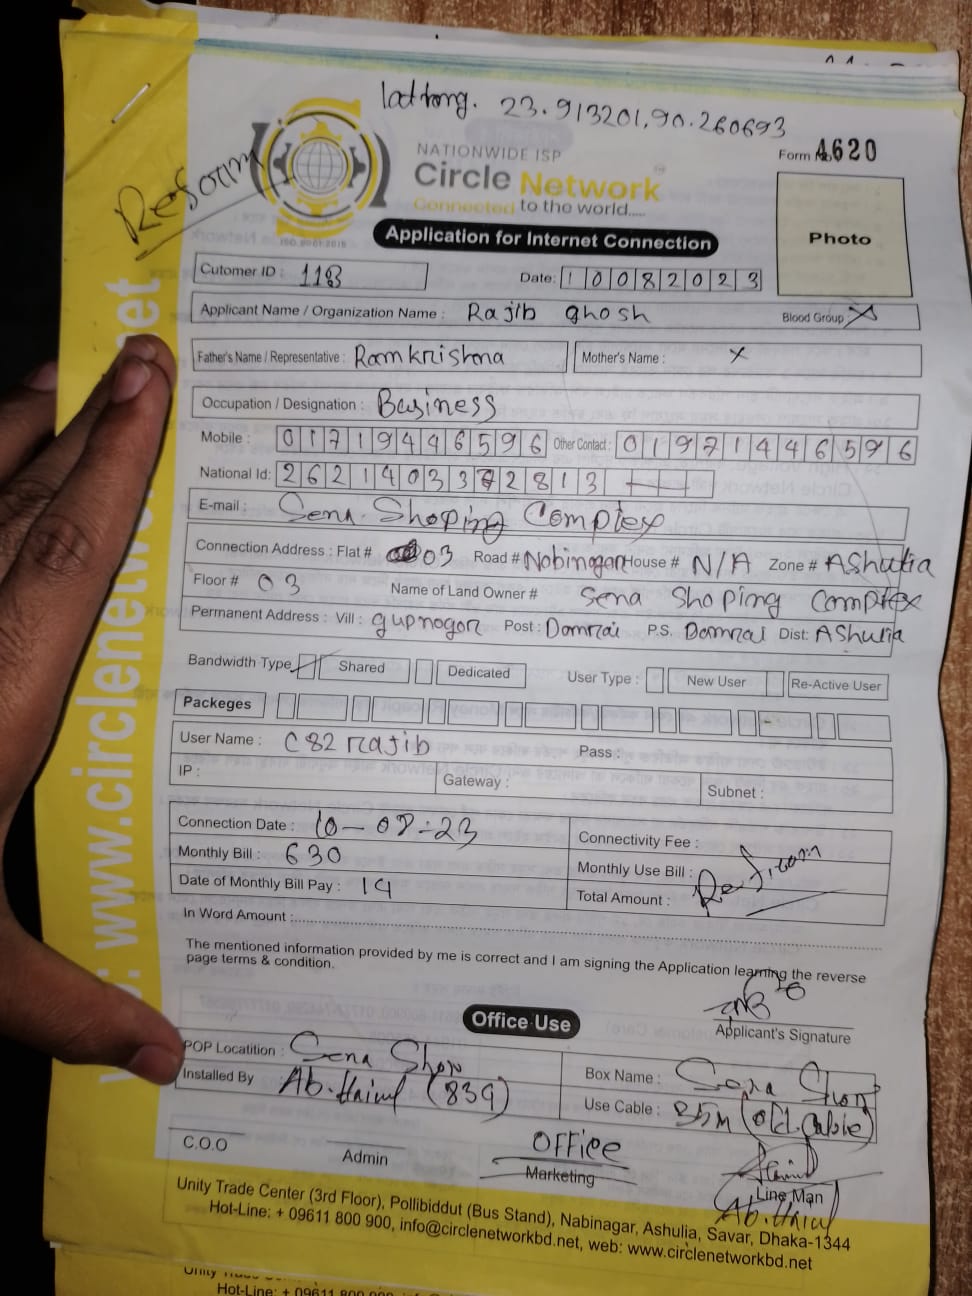 lattong. 23.913201,90.260693
Form No 4620
NATIONWIDE ISP
Circle Network
Connected to the world.....
ISO 9001:2015
Reform
Photo
Application for Internet Connection
Cutomer ID : 113
Date: 10082023
Applicant Name / Organization Name : Rajib ghosh
Blood Group : X
Father's Name / Representative : Ramkrishna
Mother's Name : X
Occupation / Designation : Business
Mobile : 01719446596
Other Contact : 01971446596
National Id: 2621403372813
E-mail : Sena Shoping Complex
Connection Address : Flat # 03 Road # Nobinogar House # N/A Zone # AShulia
Floor # 03 Name of Land Owner # Sena Shoping Complex
Permanent Address : Vill : gupnogor Post : Domrai P.S. Domrai Dist: AShulia
Bandwidth Type Shared Dedicated User Type : New User Re-Active User
Packeges
User Name : C82 rajib Pass :
IP : Gateway : Subnet :
Connection Date : 10-08-23
Connectivity Fee :
Monthly Bill : 630
Monthly Use Bill : Reform
Date of Monthly Bill Pay : 14
Total Amount :
In Word Amount :
The mentioned information provided by me is correct and I am signing the Application learning the reverse
page terms & condition.
Applicant's Signature
Office Use
POP Locatition : Sena Shop
Box Name : Sena Shop
Installed By Ab. Haiul (839)
Use Cable : 35m (old cable)
C.O.O
Admin
OFFice
Marketing
Line Man
Ab. Haiul
Unity Trade Center (3rd Floor), Pollibiddut (Bus Stand), Nabinagar, Ashulia, Savar, Dhaka-1344
Hot-Line: + 09611 800 900, info@circlenetworkbd.net, web: www.circlenetworkbd.net
www.circlenetworkbd.net
Hot-Line: + 09611 800 900